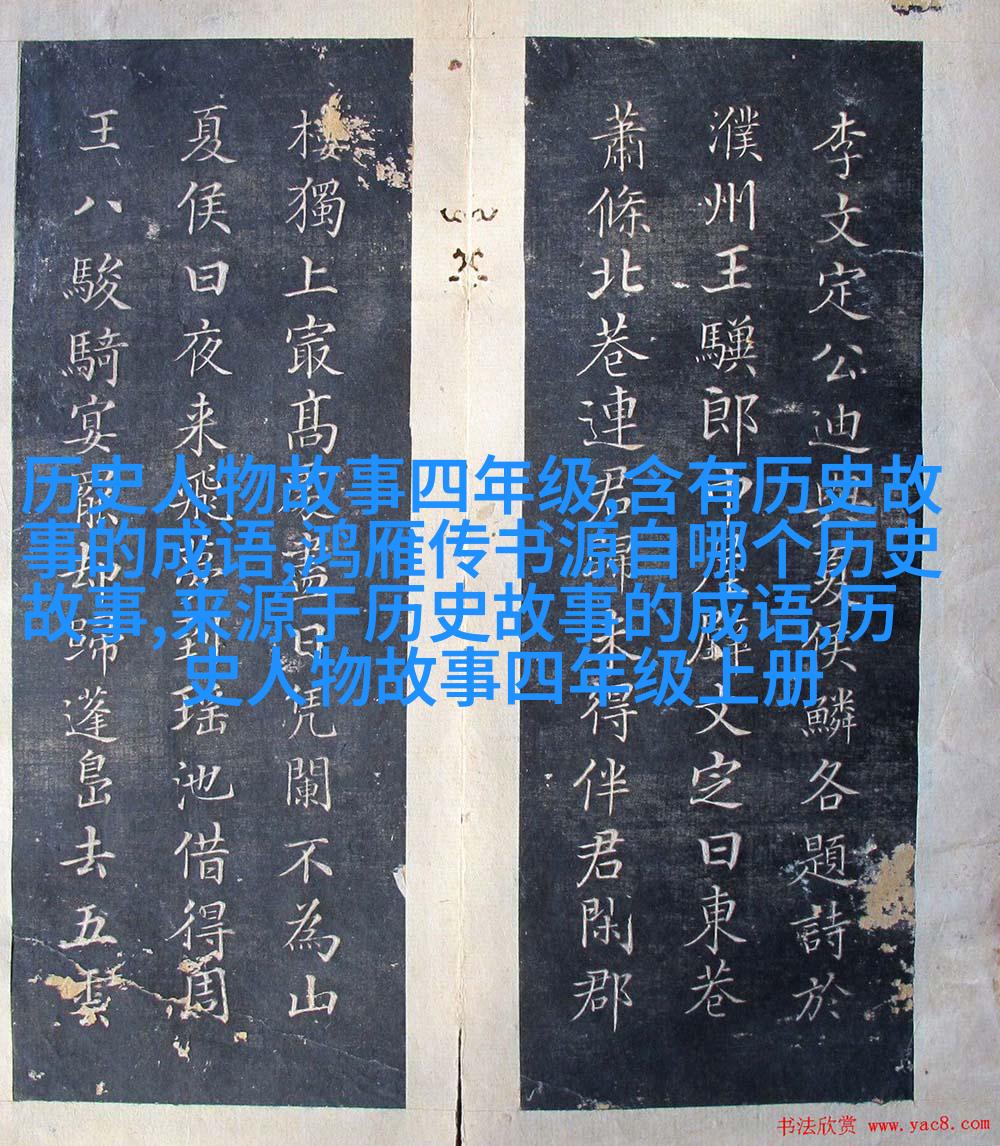 李文定公迪與夏侯鱗各題詩於
濮州王郎中屋壁文定曰東巷
蕭條北巷連君歸未得伴君閑郡
樓獨上㝡髙層盡日凭闌不為山
夏侯曰夜来飛夢到瑤池借得周
王八駿騎宴罷却歸蓬島去五雲
历史人物故事四年级,含有历史故
事的成语,鸿雁传书源自哪个历史
故事,来源于历史故事的成语,历
史人物故事四年级上册
书法欣赏 www.yac8.com